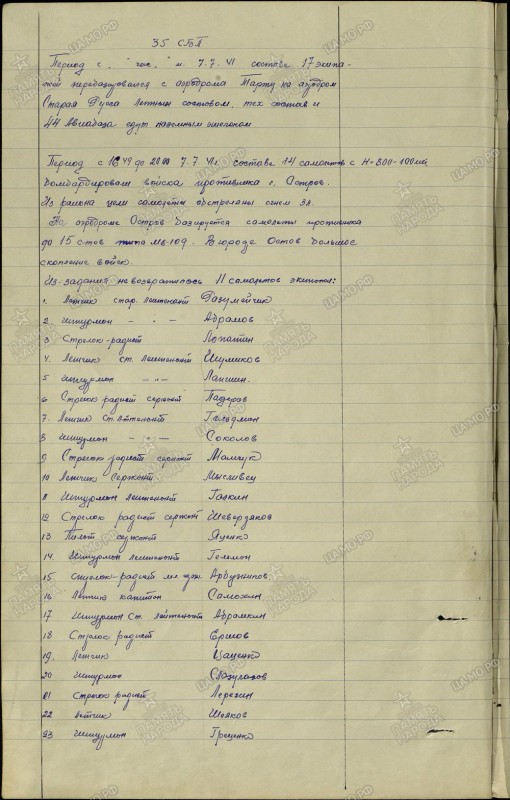 35 СБП
Период с " час. " м. 7.7.41 составе 17 экипа-
жей перебазировался с аэродрома Тарту на аэродром
Старая Русса летным составом, тех состав и
44 Авиабаза едут наземным эшелоном
Период с 16 49 до 20 00 7.7.41г. составе 14 самолетов с Н=800-100
бомбардировали войска противника г. Остров.
Из района цели самолеты обстреляны огнем ЗА.
На аэродроме Остров базируется самолеты противника
до 15 с-тов типа Ме-109. В городе Остов большое
скопление войск.
Из-задания невозвратилось 11 самолетов экипажи:
1. Летчик стар. лейтенант Разумейчик
2. Штурман - " - Абрамов
3 Стрелок-радист Лопатин
4. Летчик ст. лейтенант Шумиков
5 Штурман - " - Лапшин.
6 Стрелок радист сержант
7. Летчик ст. лейтенант Гольдман
8 Штурман - " - Соколов
9 Стрелок радист сержант Мамчук
10 Летчик сержант Мысливец
11 Штурман лейтенант Галкин
12 Стрелок радист сержант Шевердяков
13 Пилот сержант Яценко
14. Штурман лейтенант Гетман
15 Стрелок-радист Арбузников
16 Летчик капитан Самохин
17 Штурман ст. лейтенант Абрамкин
18 Стрелок радист Ершов
19. Летчик Цаценко
20 Штурман
21 Стрелок радист Перехин
22 Летчик Шелков
23 Штурман Гриценко
ЦАМО.РФ
ПАМЯТЬ НАРОДА